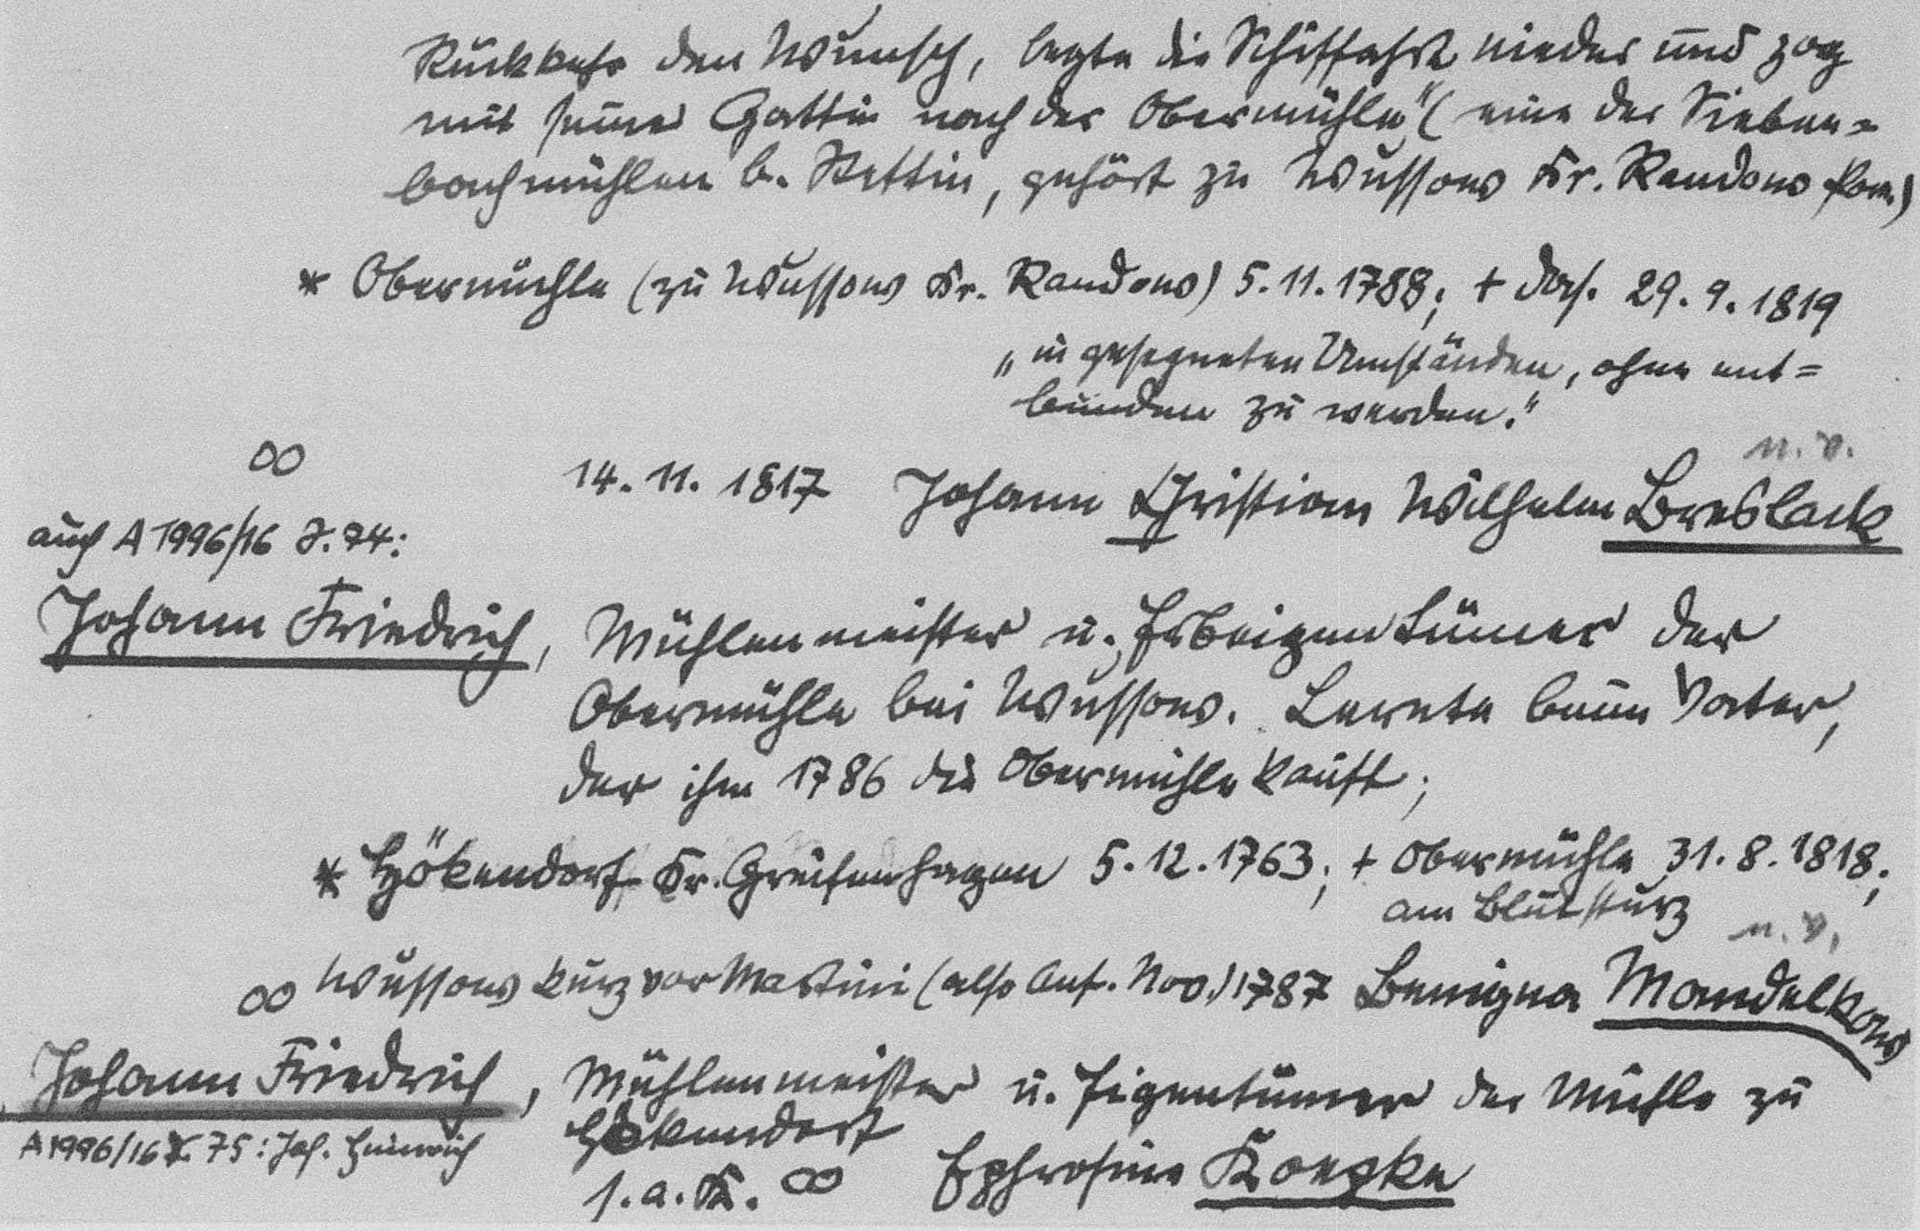 Rückkehr den Wunsch, legte die Schiffahrt nieder und zog
mit seiner Gattin nach der Obermühle" (eine der Sieben=
bachmühlen b. Stettin, gehört zu Wussow Kr. Randow Pom.)
* Obermühle (zu Wussow Kr. Randow) 5.11.1788; + das. 29.9.1819
„in gesegneten Umständen, ohne ent=
bunden zu werden."
n.v.
∞ 14.11.1817 Johann Christian Wilhelm Breslack
auch A 1996/16 S. 74:
Johann Friedrich, Mühlenmeister u. Erbeigentümer der
Obermühle bei Wussow. Lernte beim Vater,
der ihm 1786 die Obermühle kauft;
* Hökendorf Kr. Greifenhagen 5.12.1763; + Obermühle 31.8.1818;
am Blutsturz
n.v.
∞ Wussow kurz vor Martini (also Anf. Nov.) 1787 Benigna Mandelkow
Johann Friedrich, Mühlenmeister u. Eigentümer der Mühle zu
Hökendorf
A 1996/16 S. 75: Joh. Heinrich
s.a.K. ∞ Ephrosine Koepke